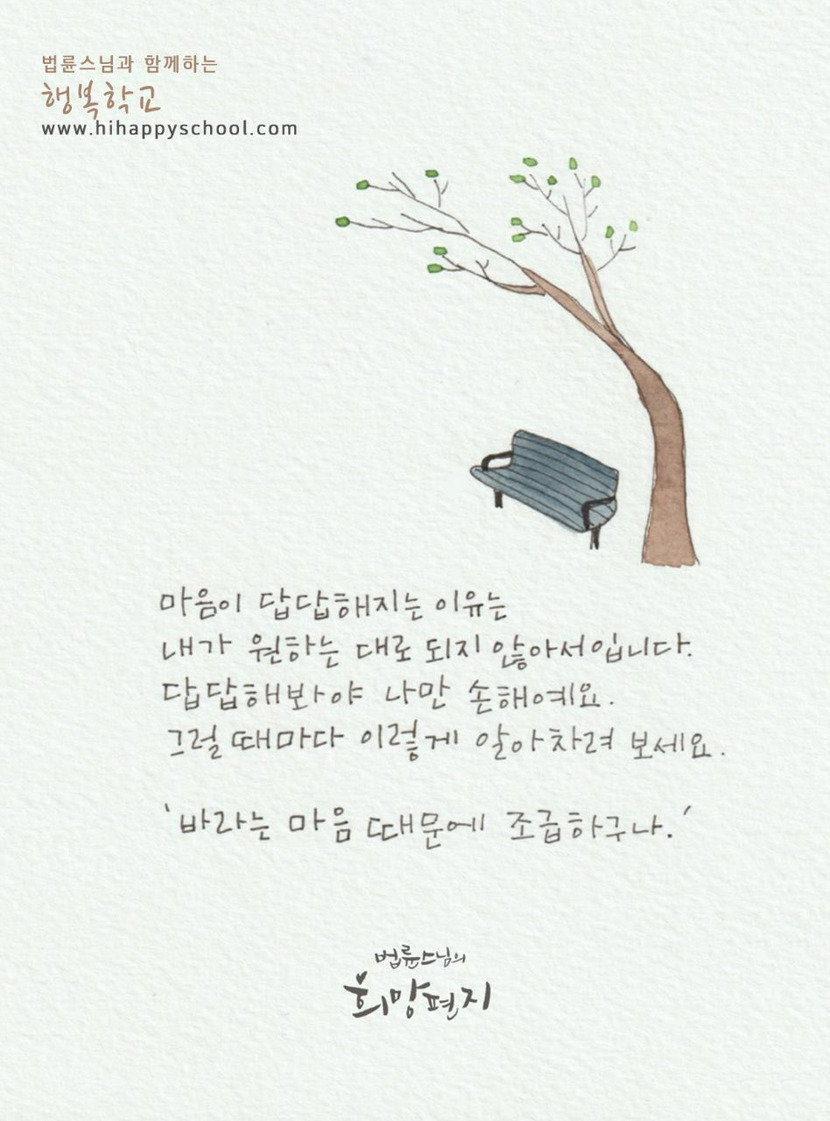 법륜스님과 함께하는
행복학교
www.hihappyschool.com
마음이 답답해지는 이유는
내가 원하는 대로 되지 않아서입니다.
답답해봐야 나만 손해예요.
그럴 때마다 이렇게 알아차려 보세요.
'바라는 마음 때문에 조급하구나.'
법륜스님의
희망편지